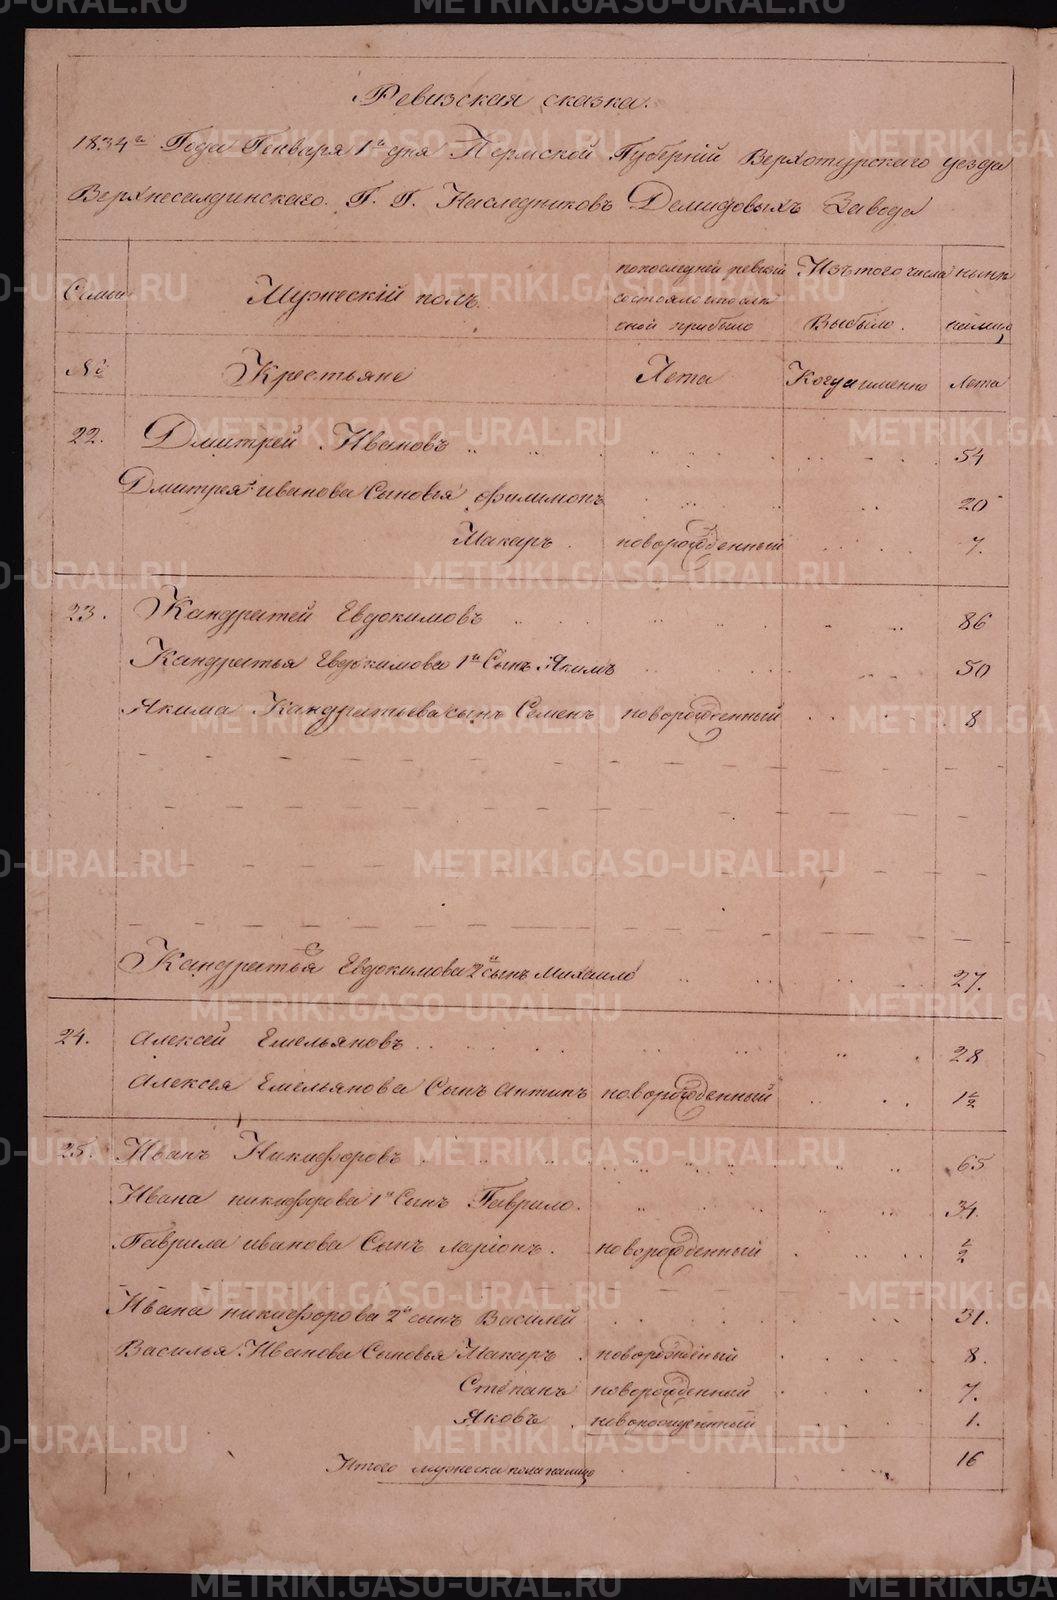 Ревизская сказка.
1834го Года Генваря 1го дня Пермской Губернiи Верхотурскаго уезда
Верхнесалдинскаго. Г. Г. Наследниковъ Демидовыхъ Завода
Семьи Мужескiй полъ. попоследней ревизiи состояло ипосли оной прибыло Изътого числа Выбыло. ныне налицо
№ Крестьяне Лета Когда именно Лета
22. Дмитрей Ивановъ 54
Дмитрея Иванова Сыновья Филимонъ 20
Макаръ новорожденный 7.
23. Кандратей Евдокимовъ 86
Кандратья Евдокимова 1й Сынъ Якимъ 50
Якима Кандратьева сынъ Семенъ новорожденный 8
Кандратья Евдокимова 2й сынъ Михаило 27.
24. Алексей Емельяновъ 28
Алексея Емельянова Сынъ Антипъ новорожденный 1½
25. Иванъ Никифоровъ 65
Ивана никифорова 1й Сынъ Гаврило. 34.
Гаврила иванова Сынъ ларiонъ. новорожденный ½
Ивана никифорова 2й сынъ Василей 31.
Василья Иванова Сыновья Макаръ новорожденый 8.
Степанъ новорожденный 7.
Яковъ новорожденный 1.
Итого мужеска пола налицо 16
METRIKI.GASO-URAL.RU